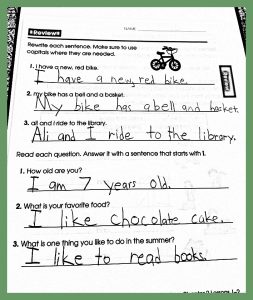 Review
NAME
Rewrite each sentence. Make sure to use
capitals where they are needed.
1. i have a new, red bike.
I have a new, red bike.
2. my bike has a bell and a basket.
My bike has a bell and basket.
3. ali and i ride to the library.
Ali and I ride to the library.
Read each question. Answer it with a sentence that starts with I.
1. How old are you?
I am 7 years old.
2. What is your favorite food?
I like chocolate cake.
3. What is one thing you like to do in the summer?
I like to read books.